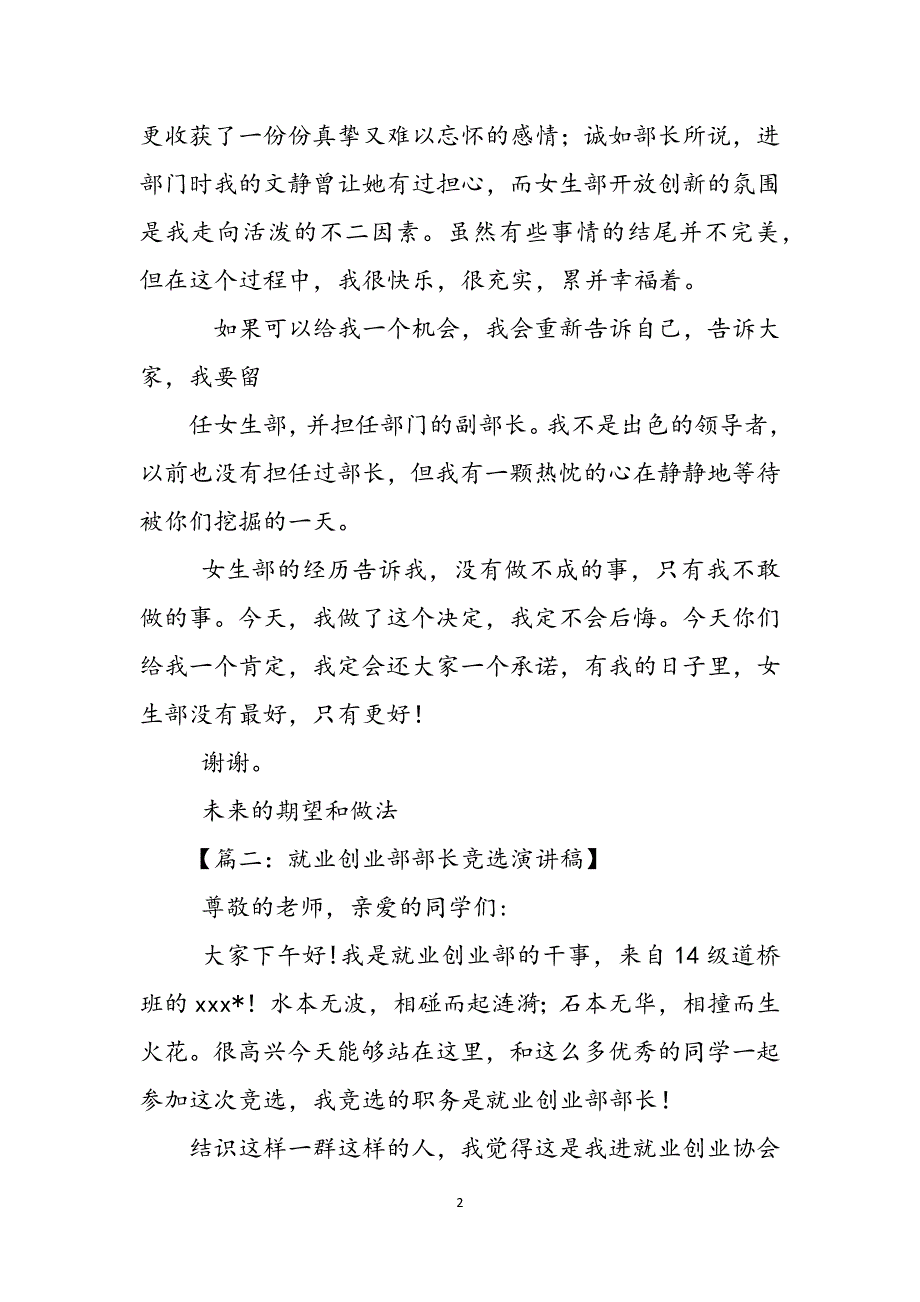 更收获了一份份真挚又难以忘怀的感情；诚如部长所说，进
部门时我的文静曾让她有过担心，而女生部开放创新的氛围
是我走向活泼的不二因素。虽然有些事情的结尾并不完美，
但在这个过程中，我很快乐，很充实，累并幸福着。
如果可以给我一个机会，我会重新告诉自己，告诉大
家，我要留
任女生部，并担任部门的副部长。我不是出色的领导者，
以前也没有担任过部长，但我有一颗热忱的心在静静地等待
被你们挖掘的一天。
女生部的经历告诉我，没有做不成的事，只有我不敢
做的事。今天，我做了这个决定，我定不会后悔。今天你们
给我一个肯定，我定会还大家一个承诺，有我的日子里，女
生部没有最好，只有更好！
谢谢。
未来的期望和做法
【篇二：就业创业部部长竞选演讲稿】
尊敬的老师，亲爱的同学们：
大家下午好！我是就业创业部的干事，来自14级道桥
班的xxx*！水本无波，相碰而起涟漪；石本无华，相撞而生
火花。很高兴今天能够站在这里，和这么多优秀的同学一起
参加这次竞选，我竞选的职务是就业创业部部长！
结识这样一群这样的人，我觉得这是我进就业创业协会
2